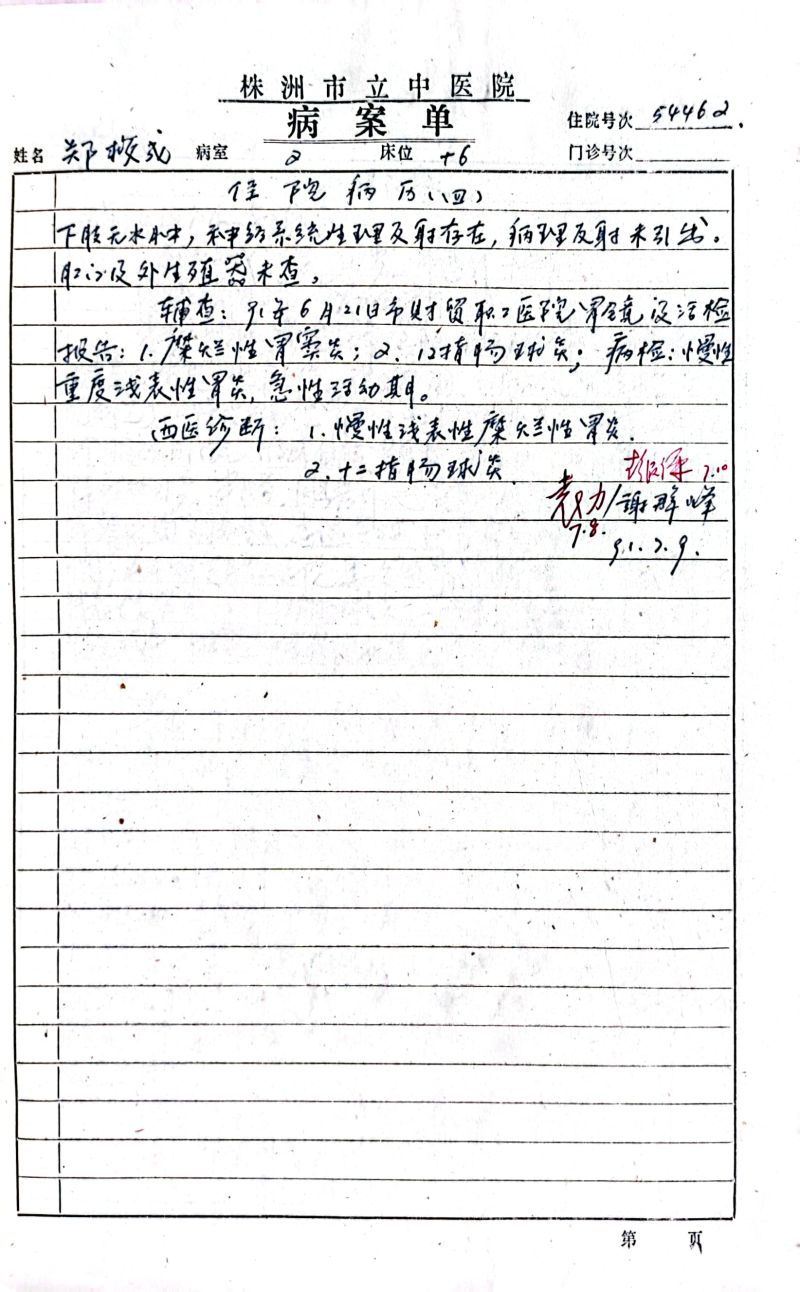 株洲市立中医院
病案单
住院号次 54462.
姓名 郑 病室 2 床位 +6 门诊号次
住院病历(四)
下肢无水肿，神经系统生理反射存在，病理反射未引出。
肛门及外生殖器未查。
辅查：91年6月21日市财贸职工医院胃镜及活检
报告：1.糜烂性胃窦炎；2.12指肠球炎；病检：慢性
重度浅表性胃炎，急性活动期。
西医诊断：1.慢性浅表性糜烂性胃炎.
2.十二指肠球炎.
7.10
袁力/谢 峰
7.8.
91.7.9.
第 页